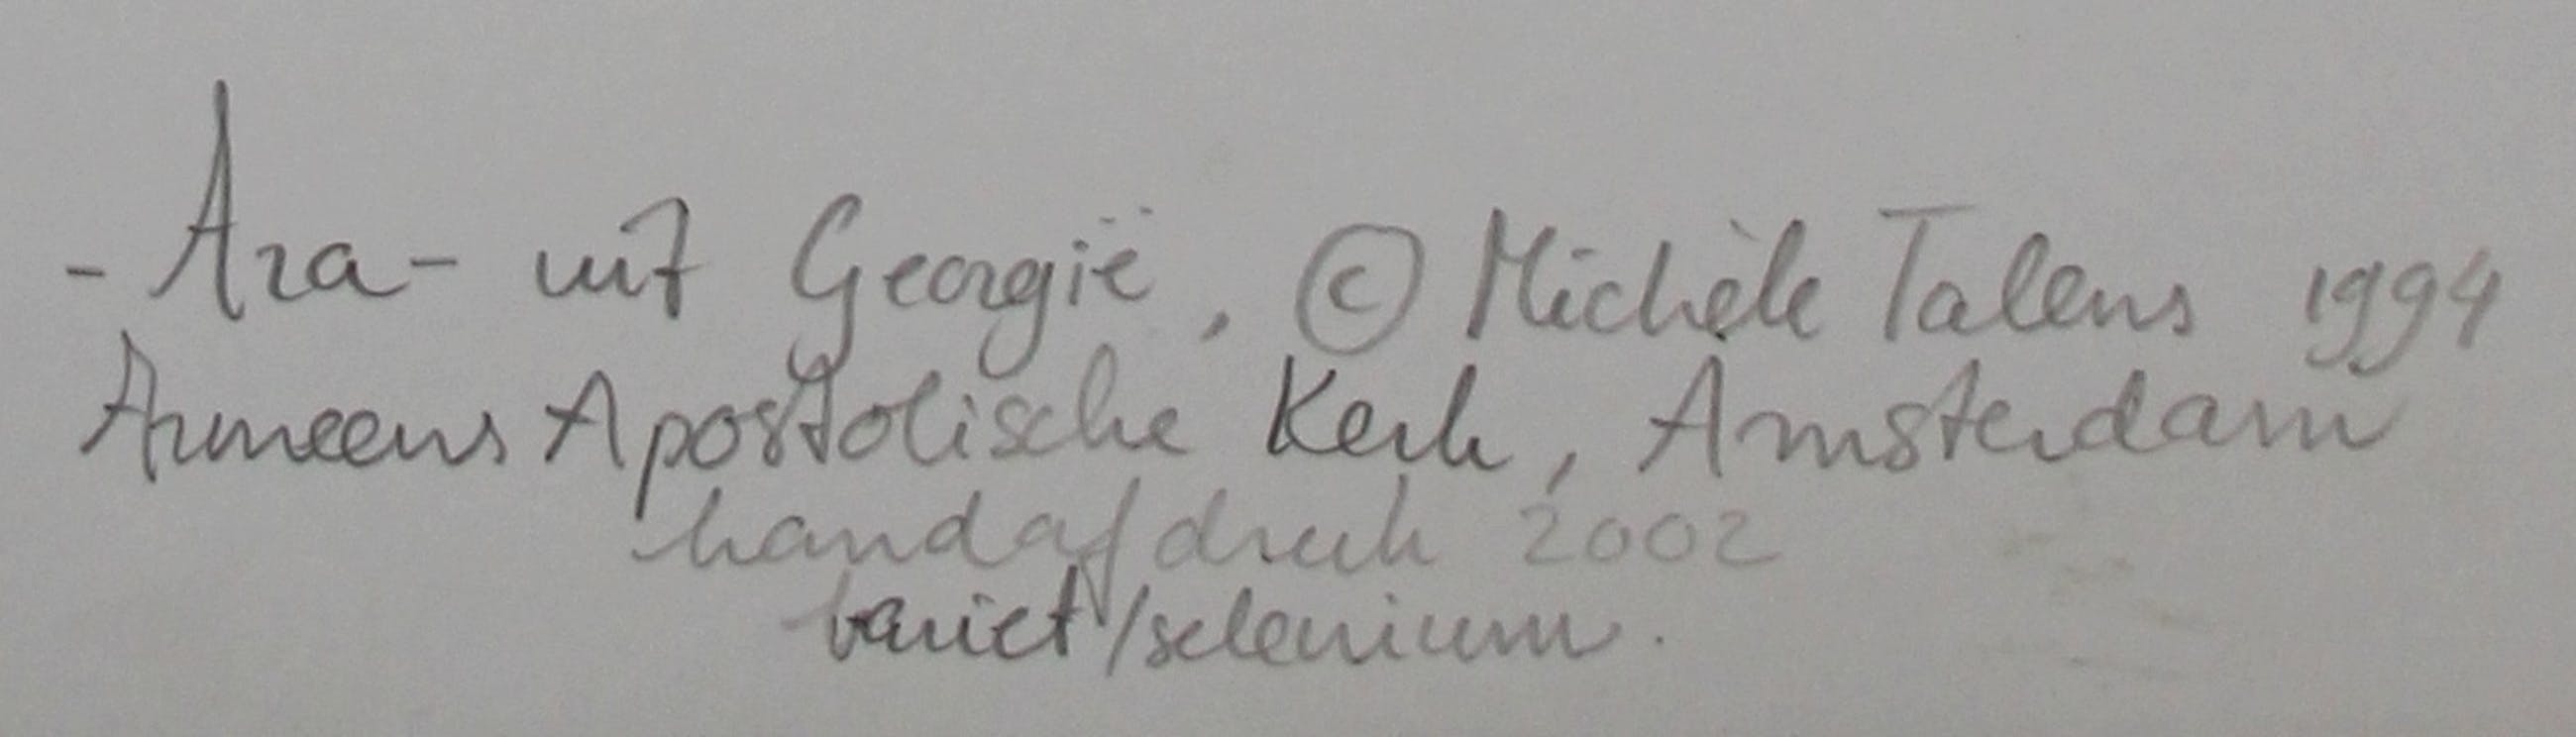 - Ara - uit Georgië, © Michèle Talens 1994
Armeens Apostolische Kerk, Amsterdam
handafdruk 2002
bariet/selenium.